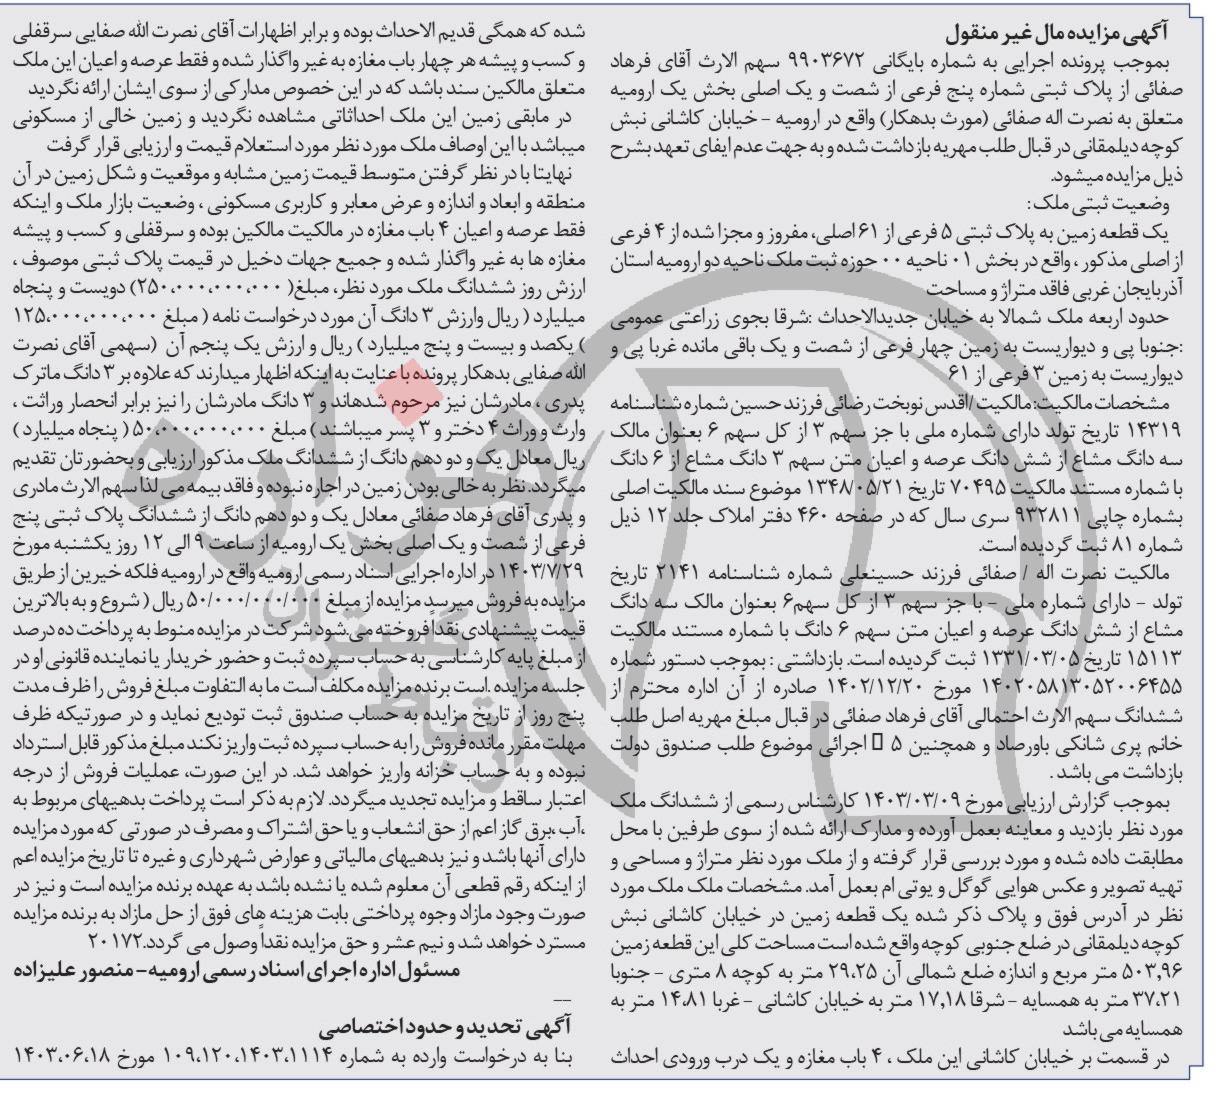 آگهی مزایده مال غیر منقول
بموجب پرونده اجرایی به شماره بایگانی ۹۹۰۳۶۷۲ سهم الارث آقای فرهاد
صفائی از پلاک ثبتی شماره پنج فرعی از شصت و یک اصلی بخش یک ارومیه
متعلق به نصرت اله صفائی (مورث بدهکار) واقع در ارومیه - خیابان کاشانی نبش
کوچه دیلمقانی در قبال طلب مهریه بازداشت شده و به جهت عدم ایفای تعهد بشرح
ذیل مزایده میشود.
وضعیت ثبتی ملک:
یک قطعه زمین به پلاک ثبتی ۵ فرعی از ۶۱ اصلی، مفروز و مجزا شده از ۴ فرعی
از اصلی مذکور، واقع در بخش ۰۱ ناحیه ۰۰ حوزه ثبت ملک ناحیه دو ارومیه استان
آذربایجان غربی فاقد متراژ و مساحت
حدود اربعه ملک شمالا به خیابان جدیدالاحداث :شرقا بجوی زراعتی عمومی
:جنوبا پی و دیواریست به زمین چهار فرعی از شصت و یک باقی مانده غربا پی و
دیواریست به زمین ۳ فرعی از ۶۱
مشخصات مالکیت: مالکیت /اقدس نوبخت رضائی فرزند حسین شماره شناسنامه
۱۴۳۱۹ تاریخ تولد دارای شماره ملی با جز سهم ۳ از کل سهم ۶ بعنوان مالک
سه دانگ مشاع از شش دانگ عرصه و اعیان متن سهم ۳ دانگ مشاع از ۶ دانگ
با شماره مستند مالکیت ۷۰۴۹۵ تاریخ ۱۳۴۸/۰۵/۲۱ موضوع سند مالکیت اصلی
بشماره چاپی ۹۳۲۸۱۱ سری سال که در صفحه ۴۶۰ دفتر املاک جلد ۱۲ ذیل
شماره ۸۱ ثبت گردیده است.
مالکیت نصرت اله / صفائی فرزند حسینعلی شماره شناسنامه ۲۱۴۱ تاریخ
تولد - دارای شماره ملی - با جز سهم ۳ از کل سهم۶ بعنوان مالک سه دانگ
مشاع از شش دانگ عرصه و اعیان متن سهم ۶ دانگ با شماره مستند مالکیت
۱۵۱۱۳ تاریخ ۱۳۳۱/۰۳/۰۵ ثبت گردیده است. بازداشتی : بموجب دستور شماره
۱۴۰۲۰۵۸۱۳۰۵۲۰۰۶۴۵۵ مورخ ۱۴۰۲/۱۲/۲۰ صادره از آن اداره محترم از
ششدانگ سهم الارث احتمالی آقای فرهاد صفائی در قبال مبلغ مهریه اصل طلب
خانم پری شانکی باورصاد و همچنین ۵ اجرائی موضوع طلب صندوق دولت
بازداشت می باشد.
بموجب گزارش ارزیابی مورخ ۱۴۰۳/۰۳/۰۹ کارشناس رسمی از ششدانگ ملک
مورد نظر بازدید و معاینه بعمل آورده و مدارک ارائه شده از سوی طرفین با محل
مطابقت داده شده و مورد بررسی قرار گرفته و از ملک مورد نظر متراژ و مساحی و
تهیه تصویر و عکس هوایی گوگل و یوتی ام بعمل آمد. مشخصات ملک ملک مورد
نظر در آدرس فوق و پلاک ذکر شده یک قطعه زمین در خیابان کاشانی نبش
کوچه دیلمقانی در ضلع جنوبی کوچه واقع شده است مساحت کلی این قطعه زمین
۵۰۳,۹۶ متر مربع و اندازه ضلع شمالی آن ۲۹،۲۵ متر به کوچه ۸ متری - جنوبا
۳۷،۲۱ متر به همسایه - شرقا ۱۷,۱۸ متر به خیابان کاشانی - غربا ۱۴،۸۱ متر به
همسایه می باشد
در قسمت بر خیابان کاشانی این ملک ، ۴ باب مغازه و یک درب ورودی احداث
شده که همگی قدیم الاحداث بوده و برابر اظهارات آقای نصرت الله صفایی سرقفلی
و کسب و پیشه هر چهار باب مغازه به غیر واگذار شده و فقط عرصه و اعیان این ملک
متعلق مالکین سند باشد که در این خصوص مدارکی از سوی ایشان ارائه نگردید
در مابقی زمین این ملک احداثاتی مشاهده نگردید و زمین خالی از مسکونی
میباشد با این اوصاف ملک مورد نظر مورد استعلام قیمت و ارزیابی قرار گرفت
نهایتا با در نظر گرفتن متوسط قیمت زمین مشابه و موقعیت و شکل زمین در آن
منطقه و ابعاد و اندازه و عرض معابر و کاربری مسکونی ، وضعیت بازار ملک و اینکه
فقط عرصه و اعیان ۴ باب مغازه در مالکیت مالکین بوده و سرقفلی و کسب و پیشه
مغازه ها به غیر واگذار شده و جمیع جهات دخیل در قیمت پلاک ثبتی موصوف ،
ارزش روز ششدانگ ملک مورد نظر، مبلغ( ۲۵۰،۰۰۰،۰۰۰،۰۰۰) دویست و پنجاه
میلیارد ( ریال وارزش ۳ دانگ آن مورد درخواست نامه ( مبلغ ۱۲۵،۰۰۰،۰۰۰،۰۰۰
) یکصد و بیست و پنج میلیارد ) ریال و ارزش یک پنجم آن (سهمی آقای نصرت
الله صفایی بدهکار پرونده با عنایت به اینکه اظهار میدارند که علاوه بر ۳ دانگ ماترک
پدری ، مادرشان نیز مرحوم شده‌اند و ۳ دانگ مادرشان را نیز برابر انحصار وراثت ،
وارث و وراث ۴ دختر و ۳ پسر میباشند ) مبلغ ۵۰،۰۰۰،۰۰۰،۰۰۰ ( پنجاه میلیارد )
ریال معادل یک و دو دهم دانگ از ششدانگ ملک مذکور ارزیابی و بحضورتان تقدیم
میگردد. نظر به خالی بودن زمین در اجاره نبوده و فاقد بیمه می لذا سهم الارث مادری
و پدری آقای فرهاد صفائی معادل یک و دو دهم دانگ از ششدانگ پلاک ثبتی پنج
فرعی از شصت و یک اصلی بخش یک ارومیه از ساعت ۹ الی ۱۲ روز یکشنبه مورخ
۱۴۰۳/۷/۲۹ در اداره اجرایی اسناد رسمی ارومیه واقع در ارومیه فلکه خیرین از طریق
مزایده به فروش میرسد مزایده از مبلغ ۵۰/۰۰۰/۰۰۰/۰۰۰ ریال ( شروع و به بالاترین
قیمت پیشنهادی نقداً فروخته می.شود شرکت در مزایده منوط به پرداخت ده درصد
از مبلغ پایه کارشناسی به حساب سپرده ثبت و حضور خریدار یا نماینده قانونی او در
جلسه مزایده .است برنده مزایده مکلف است ما به التفاوت مبلغ فروش را ظرف مدت
پنج روز از تاریخ مزایده به حساب صندوق ثبت تودیع نماید و در صورتیکه ظرف
مهلت مقرر مانده فروش را به حساب سپرده ثبت واریز نکند مبلغ مذکور قابل استرداد
نبوده و به حساب خزانه واریز خواهد شد. در این صورت، عملیات فروش از درجه
اعتبار ساقط و مزایده تجدید میگردد. لازم به ذکر است پرداخت بدهیهای مربوط به
،آب ،برق گاز اعم از حق انشعاب و یا حق اشتراک و مصرف در صورتی که مورد مزایده
دارای آنها باشد و نیز بدهیهای مالیاتی و عوارض شهرداری و غیره تا تاریخ مزایده اعم
از اینکه رقم قطعی آن معلوم شده یا نشده باشد به عهده برنده مزایده است و نیز در
صورت وجود مازاد وجوه پرداختی بابت هزینه های فوق از حل مازاد به برنده مزایده
مسترد خواهد شد و نیم عشر و حق مزایده نقداً وصول می گردد.۲۰۱۷۲
مسئول اداره اجرای اسناد رسمی ارومیه - منصور علیزاده
__
آگهی تحدید و حدود اختصاصی
بنا به درخواست وارده به شماره ۱۰۹،۱۲۰،۱۴۰۳،۱۱۱۴ مورخ ۱۴۰۳،۰۶،۱۸
هزاره
گسترش
ارتباط